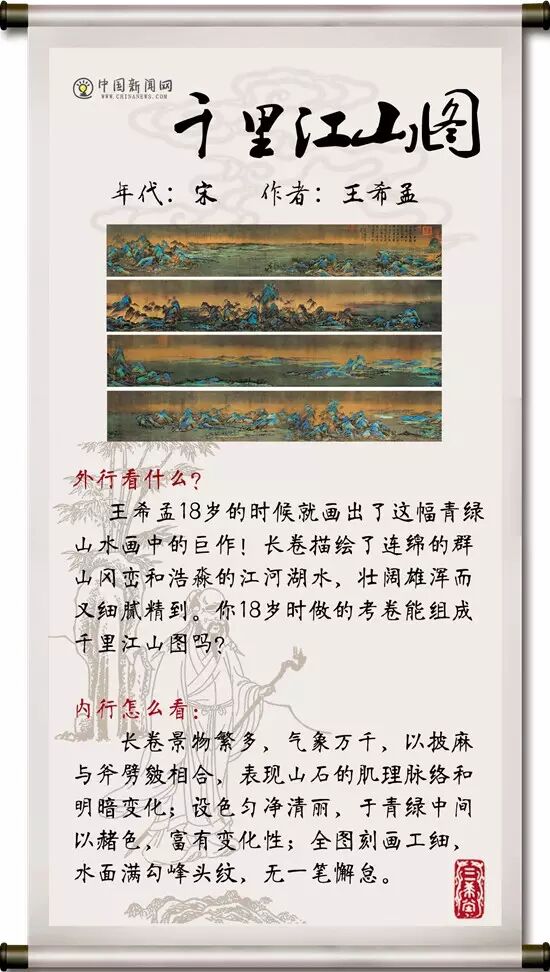 中国新闻网
WWW.CHINANEWS.COM
千里江山图
年代：宋 作者：王希孟
外行看什么？
王希孟18岁的时候就画出了这幅青绿
山水画中的巨作！长卷描绘了连绵的群
山冈峦和浩淼的江河湖水，壮阔雄浑而
又细腻精到。你18岁时做的考卷能组成
千里江山图吗？
内行怎么看：
长卷景物繁多，气象万千，以披麻
与斧劈皴相合，表现山石的肌理脉络和
明暗变化；设色匀净清丽，于青绿中间
以赭色，富有变化性；全图刻画工细，
水面满勾峰头纹，无一笔懈怠。